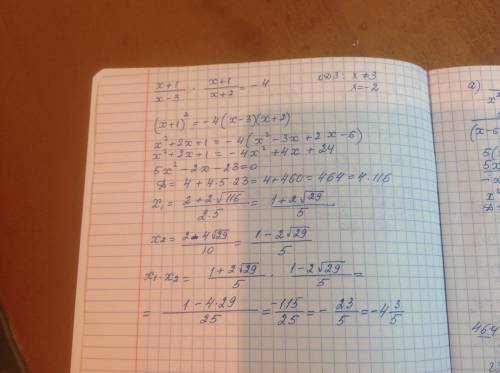 (x+1)/(x-3) · (x+1)/(x+2) = -4 ОДЗ: x≠3
x=-2
(x+1)² = -4(x-3)(x+2)
x²+2x+1 = -4(x²-3x+2x-6)
x²+2x+1 = -4x²+4x+24
5x²-2x-23=0
D = 4+4·5·23 = 4+460=464=4·116
x₁ = (2+2√116)/(2·5) = (1+2√29)/5
x₂ = (2-4√29)/10 = (1-2√29)/5
x₁·x₂ = (1+2√29)/5 · (1-2√29)/5 =
= (1-4·29)/25 = -115/25 = -23/5 = -4 3/5
а)
x²
(x-6
5(
5x
-x
x
D=
464